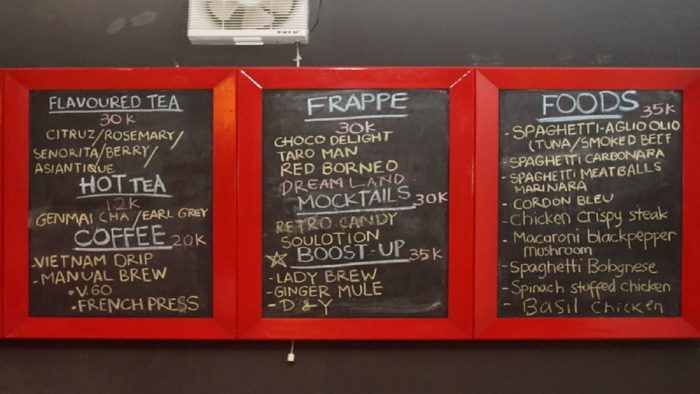 FLAVOURED TEA
30K
CITRUZ/ROSEMARY/
SENORITA/BERRY/
ASIANTIQUE
HOT TEA
12K
GENMAI CHA/EARL GREY
COFFEE 20K
-VIETNAM DRIP
-MANUAL BREW
•V.60
•FRENCH PRESS
FRAPPE
30K
CHOCO DELIGHT
TARO MAN
RED BORNEO
DREAM LAND
MOCKTAILS 30K
RETRO CANDY
SOULOTION
BOOST-UP 35K
-LADY BREW
-GINGER MULE
- D & Y
FOODS 35K
-SPAGHETTI-AGLIO OLIO
(TUNA/SMOKED BEEF
-SPAGHETTI CARBONARA
-SPAGHETTI MEATBALLS
MARINARA
-CORDON BLEU
-Chicken crispy steak
-Macaroni blackpepper
mushroom
-Spaghetti Bolognese
-Spinach stuffed chicken
- Basil Chicken